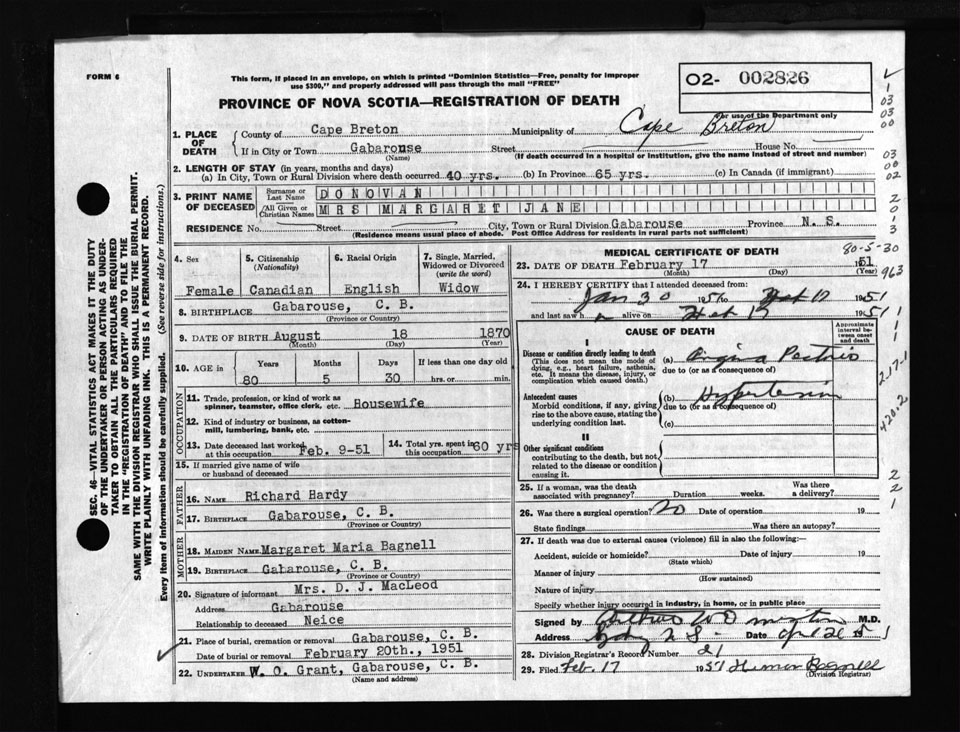 FORM 6
This form, if placed in an envelope, on which is printed "Dominion Statistics—Free, penalty for improper
use $300," and properly addressed will pass through the mail "FREE"
PROVINCE OF NOVA SCOTIA—REGISTRATION OF DEATH
02- 002826
For use of the Department only
SEC. 46—VITAL STATISTICS ACT MAKES IT THE DUTY
OF THE UNDERTAKER OR PERSON ACTING AS UNDER-
TAKER TO OBTAIN ALL THE PARTICULARS REQUIRED
IN THE "REGISTRATION OF DEATH" AND TO FILE THE
SAME WITH THE DIVISION REGISTRAR WHO SHALL ISSUE THE BURIAL PERMIT.
WRITE PLAINLY WITH UNFADING INK. THIS IS A PERMANENT RECORD.
Every item of information should be carefully supplied. (See reverse side for instructions.)
1. PLACE OF DEATH
County of Cape Breton Municipality of Cape Breton
If in City or Town Gabarouse Street House No.
(Name) (If death occurred in a hospital or institution, give the name instead of street and number)
2. LENGTH OF STAY (in years, months and days)
(a) In City, Town or Rural Division where death occurred 40 yrs. (b) In Province 65 yrs. (c) In Canada (if immigrant)
3. PRINT NAME OF DECEASED
Surname or Last Name DONOVAN
All Given or Christian Names MRS MARGARET JANE
RESIDENCE No. Street City, Town or Rural Division Gabarouse Province N. S.
(Residence means usual place of abode. Post Office Address for residents in rural parts not sufficient)
4. Sex Female
5. Citizenship (Nationality) Canadian
6. Racial Origin English
7. Single, Married, Widowed or Divorced (write the word) Widow
8. BIRTHPLACE Gabarouse, C. B.
(Province or Country)
9. DATE OF BIRTH August 18 1870
(Month) (Day) (Year)
10. AGE in Years Months Days If less than one day old
80 5 30 hrs. or min.
OCCUPATION
11. Trade, profession, or kind of work as
spinner, teamster, office clerk, etc. Housewife
12. Kind of industry or business, as cotton-
mill, lumbering, bank, etc.
13. Date deceased last worked
at this occupation Feb. 9-51
14. Total yrs. spent in
this occupation 60 yrs
15. If married give name of wife
or husband of deceased
FATHER
16. Name Richard Hardy
17. BIRTHPLACE Gabarouse, C. B.
(Province or Country)
MOTHER
18. MAIDEN NAME Margaret Maria Bagnell
19. BIRTHPLACE Gabarouse, C. B.
(Province or Country)
20. Signature of informant Mrs. D. J. MacLeod
Address Gabarouse
Relationship to deceased Neice
21. Place of burial, cremation or removal Gabarouse, C. B.
Date of burial or removal February 20th., 1951
22. UNDERTAKER W. O. Grant, Gabarouse, C. B.
(Name and address)
MEDICAL CERTIFICATE OF DEATH
80-5-30
23. DATE OF DEATH February 17 1951
(Month) (Day) (Year)
24. I HEREBY CERTIFY that I attended deceased from:
Jan 30 1951 to Feb 1951
and last saw h alive on Feb 1951
CAUSE OF DEATH
Approximate interval between onset and death
I
Disease or condition directly leading to death
(This does not mean the mode of
dying, e.g., heart failure, asthenia,
etc. It means the disease, injury, or
complication which caused death.)
(a) Angina Pectoris
due to (or as a consequence of)
Antecedent causes
Morbid conditions, if any, giving
rise to the above cause, stating the
underlying condition last.
(b) Hypertension
due to (or as a consequence of)
(c)
II
Other significant conditions
contributing to the death, but not
related to the disease or condition
causing it.
25. If a woman, was the death
associated with pregnancy? Duration weeks. Was there
a delivery?
26. Was there a surgical operation? No Date of operation 19
State findings Was there an autopsy?
27. If death was due to external causes (violence) fill in also the following:—
Accident, suicide or homicide? Date of injury 19
(State which)
Manner of injury
(How sustained)
Nature of injury
Specify whether injury occurred in industry, in home, or in public place
Signed by M.D.
Address Date
28. Division Registrar's Record Number 21
29. Filed Feb. 17 1951 Bagnell
(Division Registrar)
1
03
03
00
03
00
02
2
0
1
3
963
1
1
1
217-1
420.2
2
2
1